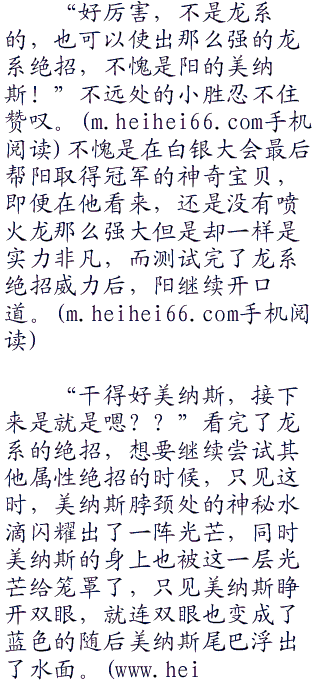 “好厉害，不是龙系
的，也可以使出那么强的龙
系绝招，不愧是阳的美纳
斯！”不远处的小胜忍不住
赞叹。(m.heihei66.com手机
阅读)不愧是在白银大会最后
帮阳取得冠军的神奇宝贝，
即便在他看来，还是没有喷
火龙那么强大但是却一样是
实力非凡，而测试完了龙系
绝招威力后，阳继续开口
道。(m.heihei66.com手机阅
读)
“干得好美纳斯，接下
来是就是嗯？？”看完了龙
系的绝招，想要继续尝试其
他属性绝招的时候，只见这
时，美纳斯脖颈处的神秘水
滴闪耀出了一阵光芒，同时
美纳斯的身上也被这一层光
芒给笼罩了，只见美纳斯睁
开双眼，就连双眼也变成了
蓝色的随后美纳斯尾巴浮出
了水面。(www.hei